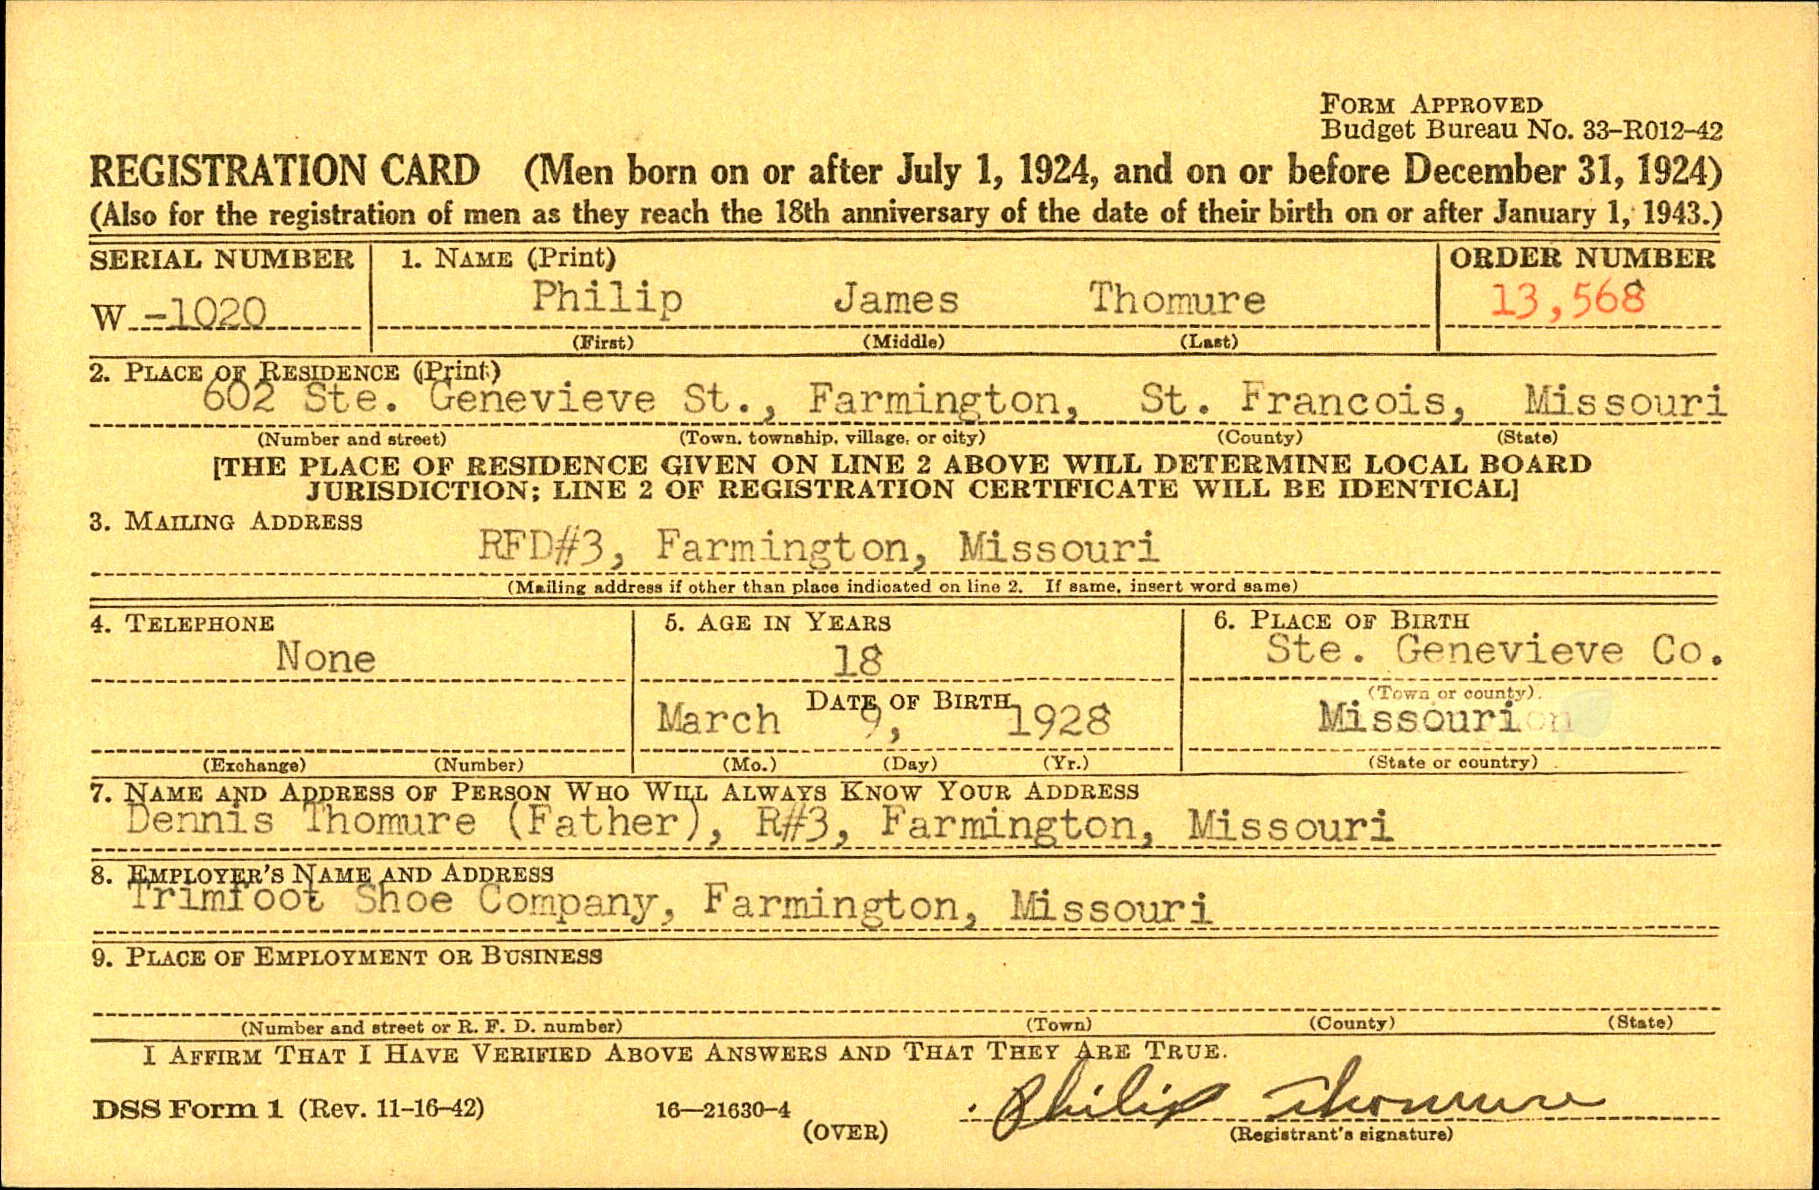 FORM APPROVED
Budget Bureau No. 33-R012-42
REGISTRATION CARD (Men born on or after July 1, 1924, and on or before December 31, 1924)
(Also for the registration of men as they reach the 18th anniversary of the date of their birth on or after January 1, 1943.)
SERIAL NUMBER 1. NAME (Print) ORDER NUMBER
W -1020 Philip James Thomure 13,568
(First) (Middle) (Last)
2. PLACE OF RESIDENCE (Print)
602 Ste. Genevieve St., Farmington, St. Francois, Missouri
(Number and street) (Town, township, village, or city) (County) (State)
[THE PLACE OF RESIDENCE GIVEN ON LINE 2 ABOVE WILL DETERMINE LOCAL BOARD
JURISDICTION; LINE 2 OF REGISTRATION CERTIFICATE WILL BE IDENTICAL]
3. MAILING ADDRESS
RFD#3, Farmington, Missouri
(Mailing address if other than place indicated on line 2. If same, insert word same)
4. TELEPHONE 5. AGE IN YEARS 6. PLACE OF BIRTH
None 18 Ste. Genevieve Co.
DATE OF BIRTH (Town or county)
March 9, 1928 Missouri
(Exchange) (Number) (Mo.) (Day) (Yr.) (State or country)
7. NAME AND ADDRESS OF PERSON WHO WILL ALWAYS KNOW YOUR ADDRESS
Dennis Thomure (Father), R#3, Farmington, Missouri
8. EMPLOYER'S NAME AND ADDRESS
Trimfoot Shoe Company, Farmington, Missouri
9. PLACE OF EMPLOYMENT OR BUSINESS
(Number and street or R. F. D. number) (Town) (County) (State)
I AFFIRM THAT I HAVE VERIFIED ABOVE ANSWERS AND THAT THEY ARE TRUE.
DSS Form 1 (Rev. 11-16-42) 16—21630-4 Philip Thomure
(OVER) (Registrant's signature)